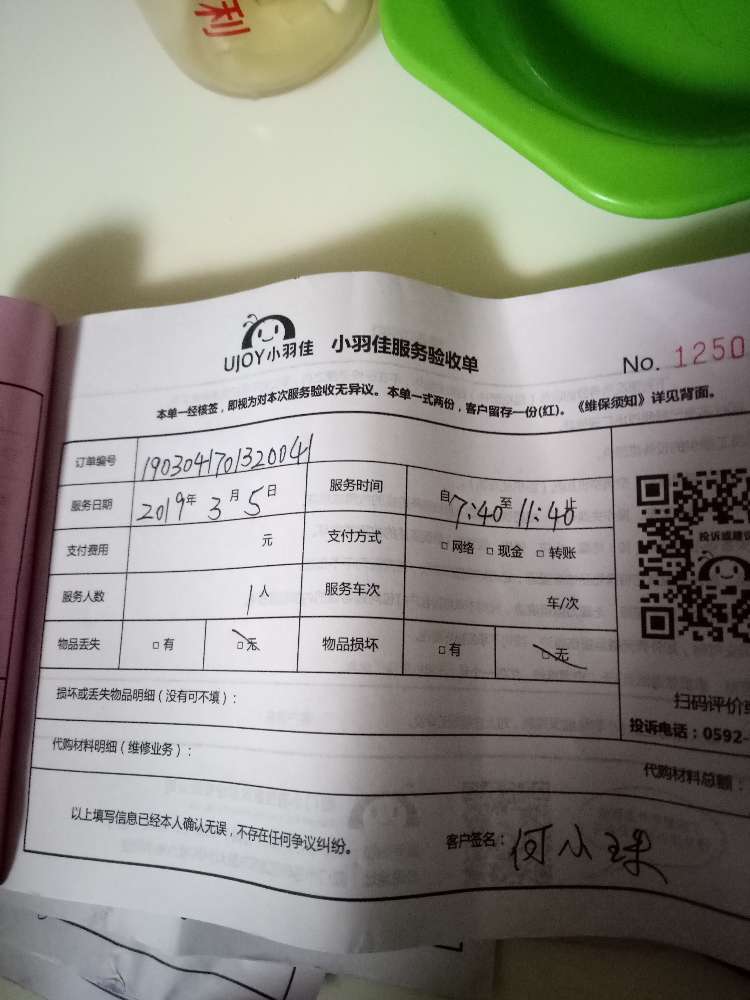 利
UJOY小羽佳 小羽佳服务验收单 No. 1250
本单一经核签，即视为对本次服务验收无异议。本单一式两份，客户留存一份(红)。《维保须知》详见背面。
订单编号 190304170132004
服务日期 2019年 3月 5日 服务时间 自7:40至11:40止
支付费用 元 支付方式 □网络 □现金 □转账
投诉或建议
服务人数 1人 服务车次 车/次
物品丢失 □有 □无 物品损坏 □有 □无
扫码评价
损坏或丢失物品明细（没有可不填）：
投诉电话：0592-
代购材料明细（维修业务）：
代购材料总额：
以上填写信息已经本人确认无误，不存在任何争议纠纷。 客户签名：何小球